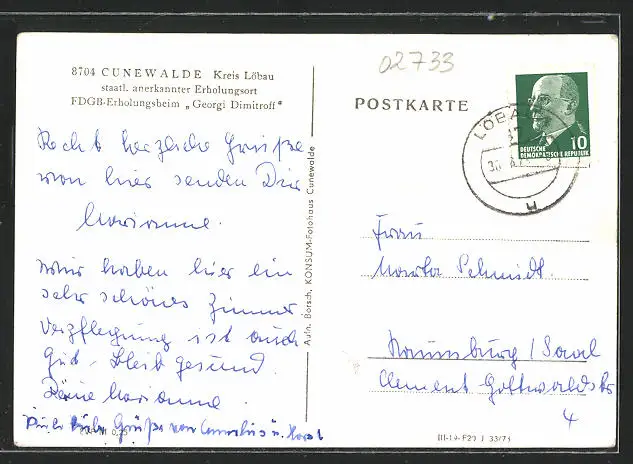 02733
8704 CUNEWALDE Kreis Löbau
staatl. anerkannter Erholungsort
FDGB-Erholungsheim „Georgi Dimitroff"
POSTKARTE
LÖBAU
DEUTSCHE
DEMOKRATISCHE REPUBLIK
10
Recht herzliche Grüße
von hier senden Dir
Marianne.
Wir haben hier ein
sehr schönes Zimmer
Verpflegung ist auch
gut. Bleib gesund.
Deine Marianne.
Grüße von u. Horst
Aufn. Borsch, KONSUM-Fotohaus Cunewalde
Frau
Marta Schmidt.
Naumburg / Saal
Clement Gottwaldstr
4
III-19-F29 J 33/73